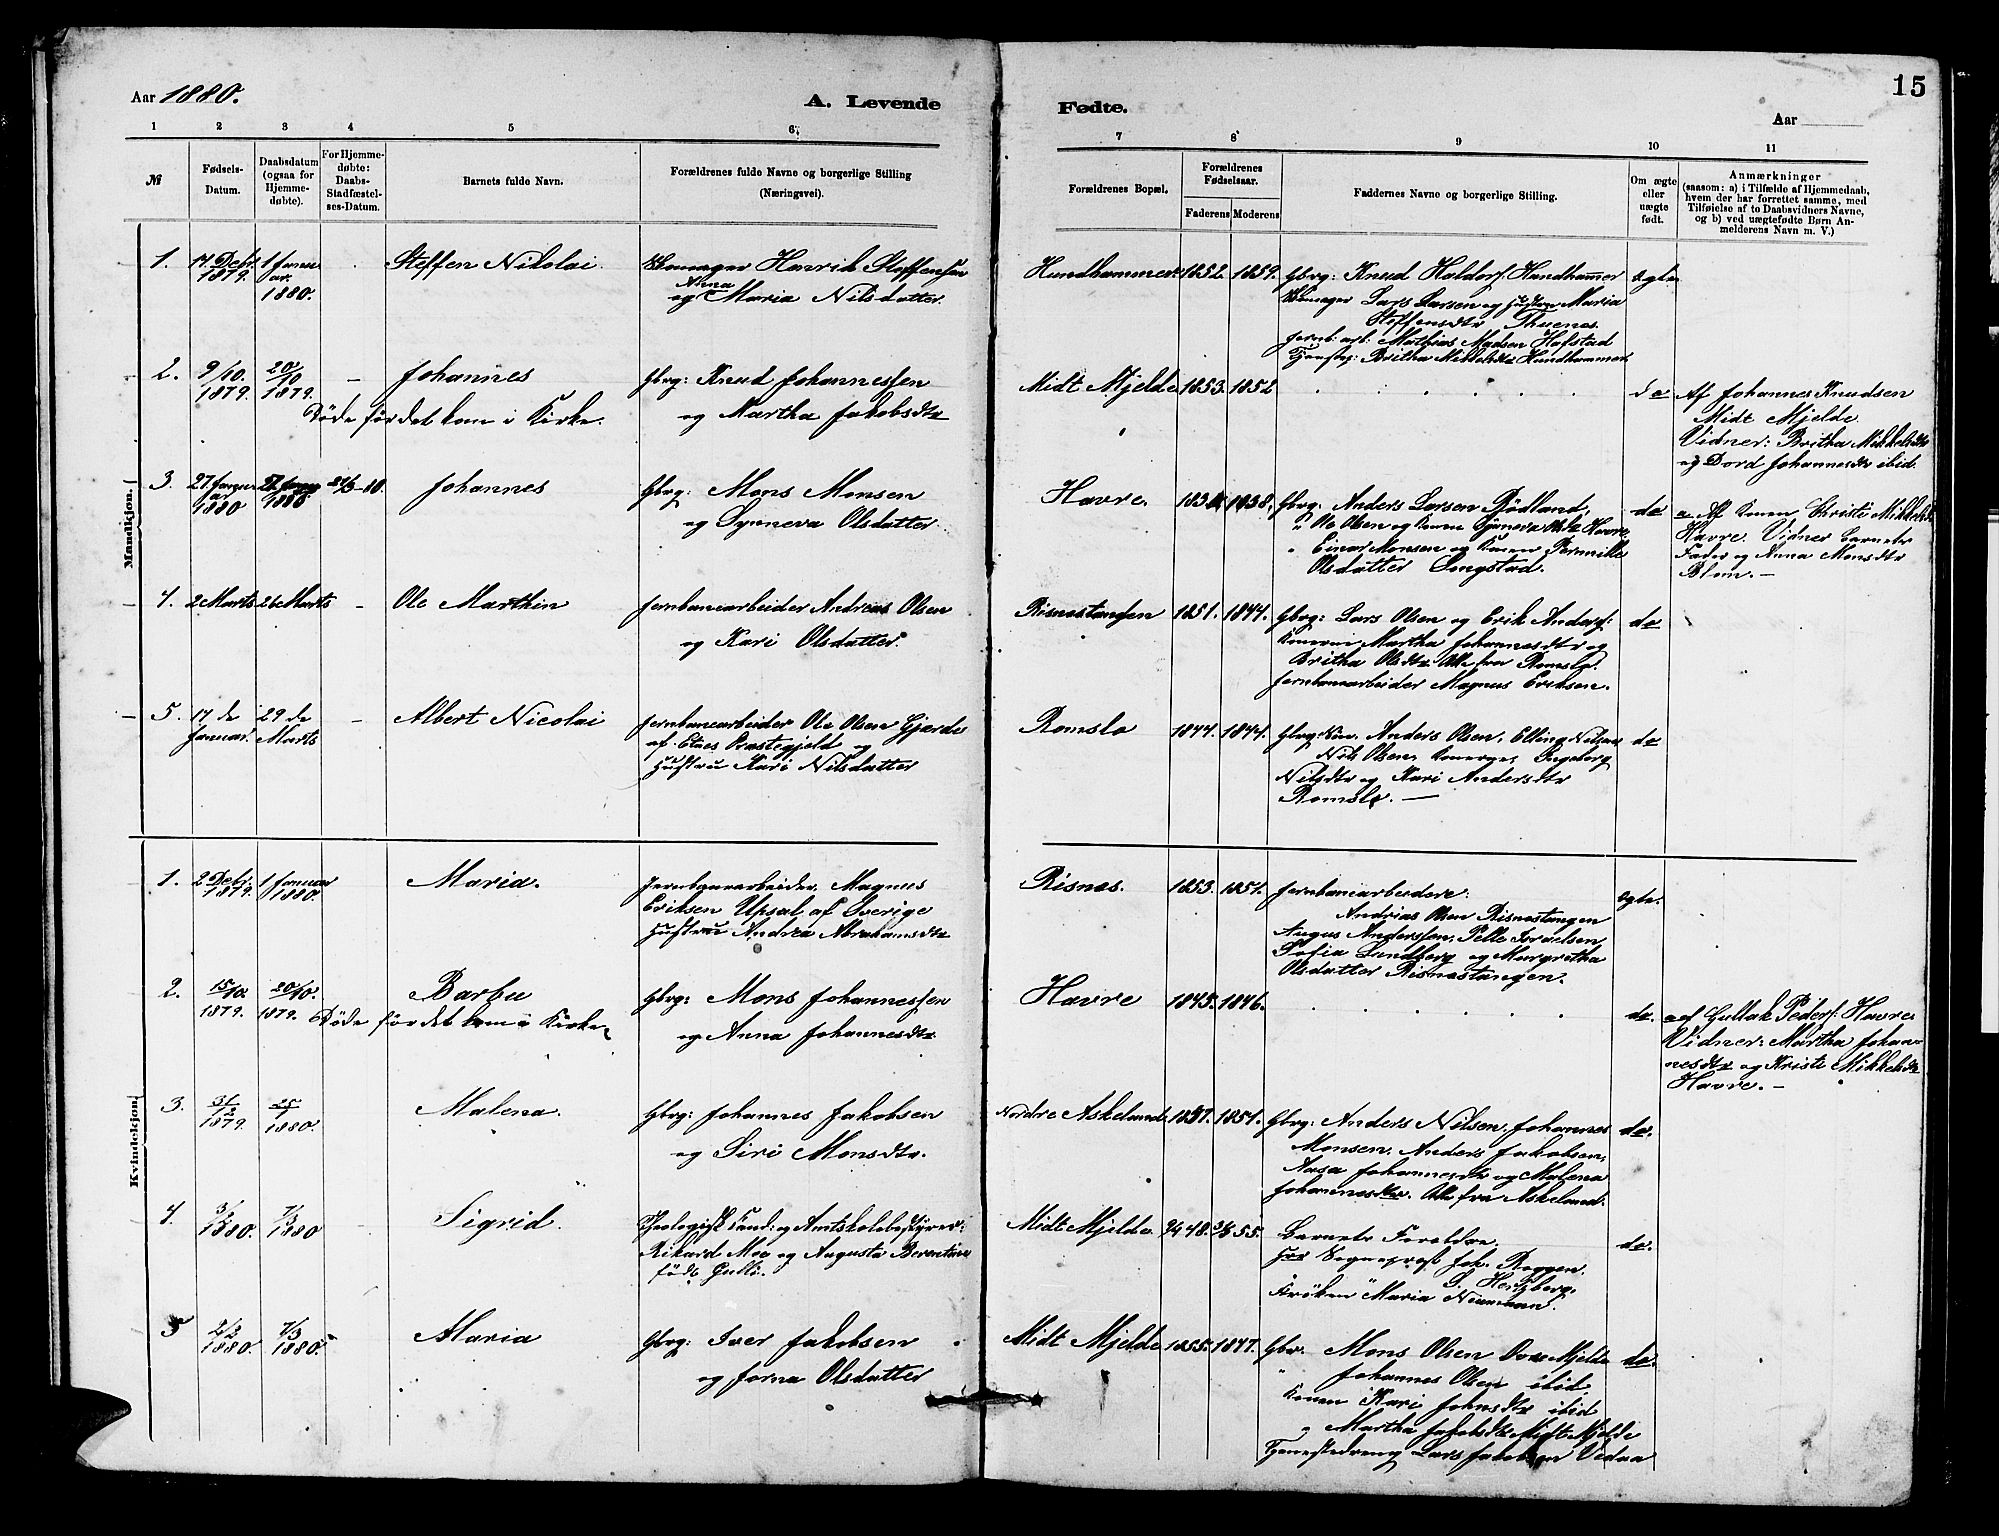 15
Aar 1880.
A. Levende
Fødte.
Aar
1 2 3 4 5 6 7 8 9 10 11
№
Fødsels-
Datum.
Daabsdatum
(ogsaa for
Hjemme-
døbte).
For Hjemme-
døbte:
Daabs-
Stadfæstel-
ses-Datum.
Barnets fulde Navn.
Forældrenes fulde Navne og borgerlige Stilling
(Næringsvei).
Forældrenes Bopæl.
Forældrenes
Fødselsaar.
Faderens Moderens
Faddernes Navne og borgerlige Stilling.
Om ægte
eller
uægte
født.
Anmærkninger
(saasom: a) i Tilfælde af Hjemmedaab,
hvem der har forrettet samme, med
Tilføielse af to Daabsvidners Navne,
og b) ved uægtefødte Børn An-
melderens Navn m. V.)
Mandkjøn.
1.
17 Debr.
1879.
1 Janu
ar.
1880.
Steffen Nikolai
Henrik Steffensen
Anna
og Maria Nilsdatter.
Hundhammer
1852. 1859.
Gbrg: Knud Haldors. Hundhammer
Lars Larsen og Hustru Maria
Steffensdtr Thuenes.
Jernb: arb: Mathias Madsen Hofstad
Tjenstepg: Britha Mikkelsdtr Hundhammer.
ægte
2.
9/10
1879.
20/10
1879.
Johannes
Døde før det kom i Kirke.
Gbrg: Knud Johannessen
og Martha Jakobsdtr
Midt Mjelde
1853. 1852
do
Af Johannes Knudsen
Midt Mjelde
Vidner: Britha Mikkelsdtr
og Dord Johannesdtr ibid.
3.
27 Janu
ar
1880
1880
21/3-80.
Johannes
Gbrg: Mons Monsen
og Synneva Olsdatter.
Havre.
1838.
Gbrg: Anders Larsen Rødland,
" Ole Olsen og Konen Synneva Olsdtr Havre.
" Einar Monsen og Konen Pernille
Olsdatter Songstad.
do
a Af Konen Christi Mikkelsdtr
Havre. Vidner Barnets
Fader og Anna Monsdtr
Blom. —
4.
2 Marts 26 Marts
Ole Marthin
Jernbanearbeider Andreas Olsen
og Kari Olsdatter.
Risnestangen
1851. 1844.
Gbrg: Lars Olsen og Erik Anders:
Konerne Martha Johannesdtr og
Britha Olsdtr Alle fra Romslo.
Jernbanearbeider Magnus Eriksen.
do
5.
17 de
Januar.
29 de
Marts
Albert Nicolai
Jernbanearbeider Ole Olsen Gjerde
af Etnes Præstegjeld og
Hustru Kari Nilsdatter
Romslo
1844. 1844.
Anders Olsen, Elling Nilsen
Nils Olsen, Konerne Ingeborg
Nilsdtr og Kari Andersdtr
Romslo. —
do
Kvindekjøn
1.
2 Debr.
1879.
1 Januar
1880.
Maria.
Jernbanearbeider Magnus
Eriksen Upsal af Sverige
Hustru Andrea Abrahamsdtr
Risnes.
1853. 1851.
Jernbanearbeidere:
Andrias Olsen Risnestangen
Augus Anderssen, Pelle Israelsen
Sofia Lundberg og Margretha
Olsdatter Risnestangen.
ægte.
2.
15/10.
1879.
20/10.
1879.
Barbu
Døde før det kom i Kirke
Gbrg: Mons Johannessen
og Anna Johannesdtr.
Havre
1843. 1846.
do.
a af Gullak Peders: Havre
Vidner: Martha Johan-
nesdtr og Kristi Mikkelsdtr
Havre. —
3.
31/12
1879.
25/1
1880.
Malena.
Gbrg: Johannes Jakobsen
og Siri Monsdtr.
Nordre Askeland
1851.
Gbrg: Anders Nilsen, Johannes
Monsen, Anders Jakobsen,
Aasa Johannesdtr og Malena
Johannesdtr. Alle fra Askeland.
do.
4.
1880.
7/3
1880
Sigrid.
Theologisk Cand: og Amtskolebestyrer:
Rikard Moe og Augusta Berentine
født
Midt Mjelde
Barnets Forældre.
Sogneprest Joh. Roggen.
S. Hertzberg.
Frøken Maria Neumann.
do.
5
2/2
1880.
7/3
1880.
Maria
Gbrg: Iver Jakobsen
og Jorna Olsdatter
Midt Mjelde
1855. 1847.
Gbr. Mons Olsen Øvre Mjelde
" Johannes Olsen ibid.
Konen Kari Johnsdtr ibid
" Martha Jakobsdtr Midt Mjelde
Tjenestedreng Lars Jakobsen Vedaa
do.